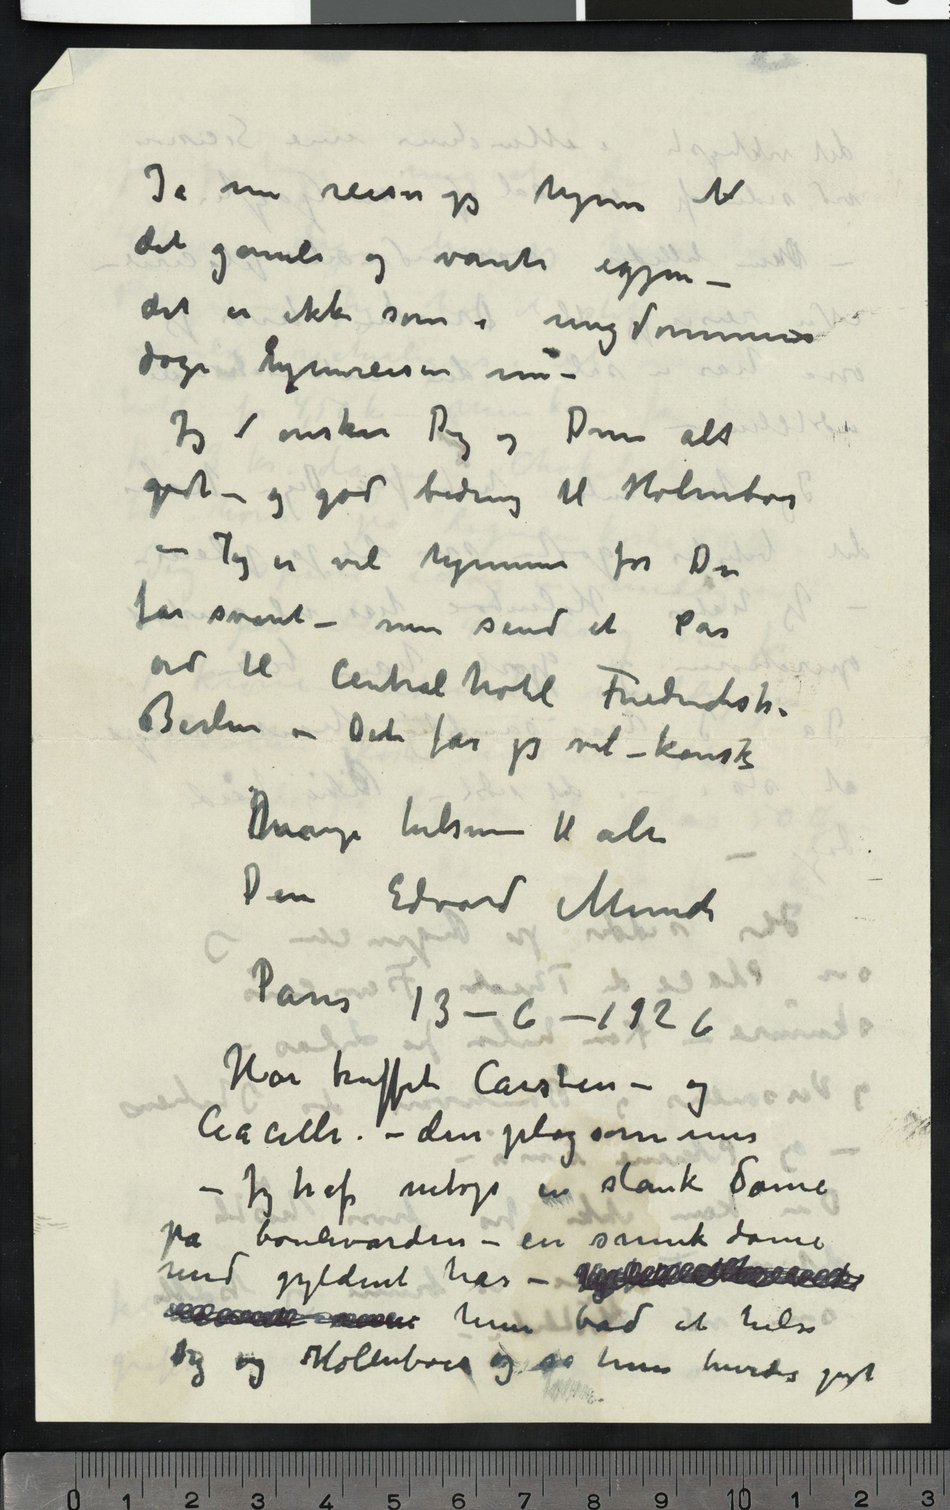 Ja nu reiser jeg hjem til
det gamle og vante igjen –
det er ikke som i ungdommens
dage hjemreisen nu –
Jeg ønsker Dig og Dine alt
godt – og god bedring til Holmboes
– Jeg er vel hjemme før Du
får svaret – men send et Par
ord til Centralhotel Friedrichstr.
Berlin – Det får jeg vel – kanske
Mange hilsener til alle
Din Edvard Munch
Paris 13 – 6 – 1926
Har truffet Carsten – og
den plagsomme
– Jeg traf netop en slank dame
på boulevarden – en smuk dame
med gyldent hår –
hun bad at hilse
Dig og Holmboes og så hun